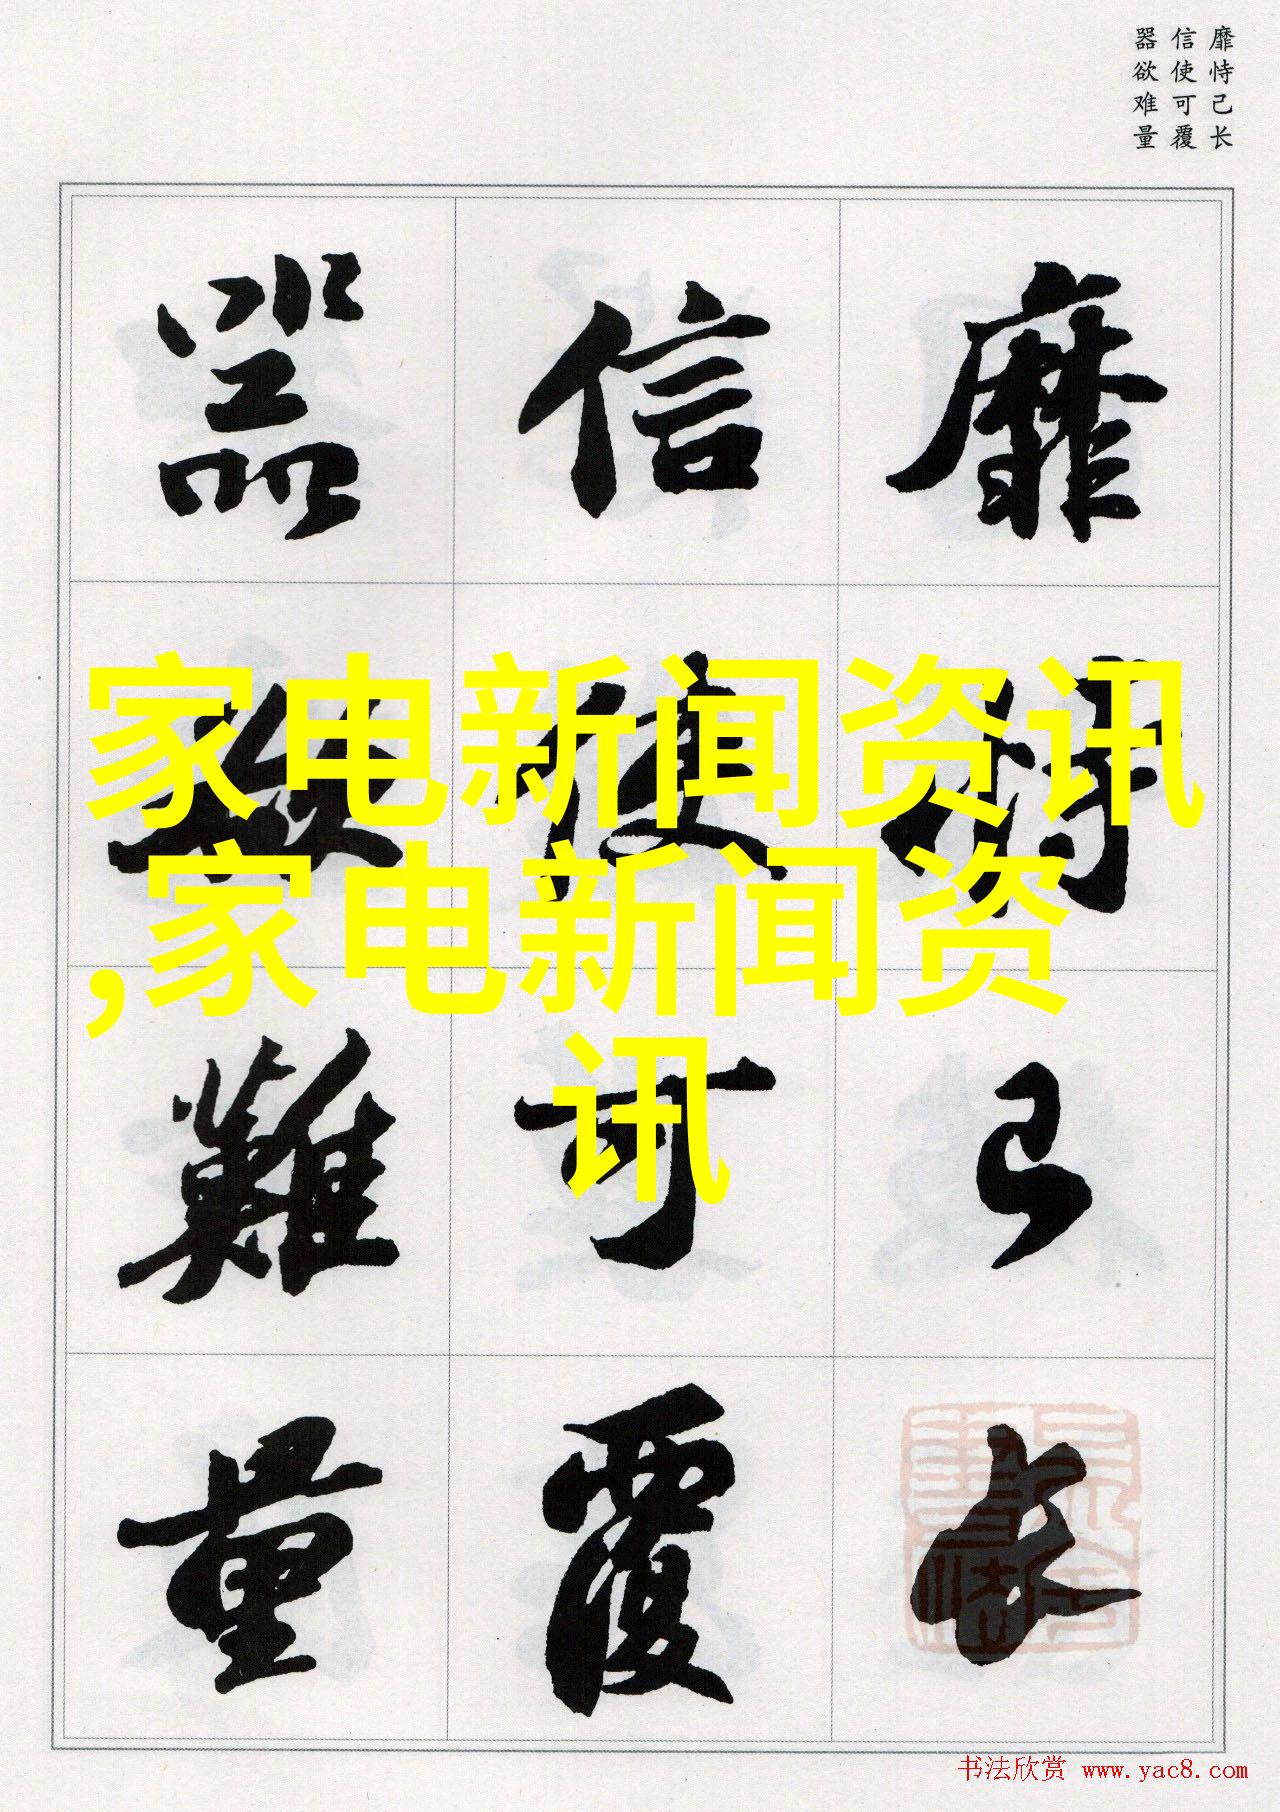 靡恃己长
信使可覆
器欲难量
靡恃己长
信使可覆
器欲難量
家电新闻资讯
,家电新闻资
讯
书法欣赏 www.yac8.com